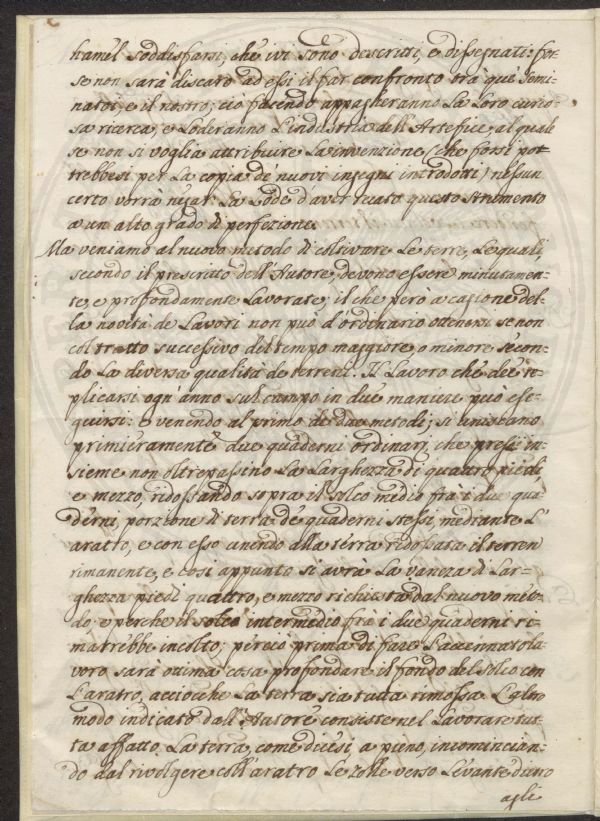 hamel soddisfarsi, che ivi sono descritti, e dissegnati: for-
se non sarà discaro ad essi il far confronto trà que' semi-
natoi, e il nostro, ciò facendo appagheranno La Loro curio-
sa ricerca, e Loderanno L'industria dell'Artefice, al quale
se non si voglia attribuire La invenzione, (che forsi pot-
trebbesi per La copia de' nuovi insegni introdotti) nessun
certo vorrà negar La Lode d'aver recato questo strumento
a un alto grado di perfezione.
Ma veniamo al nuovo metodo di coltivare Le terre, Le quali,
secondo il prescritto dell'Autore, devono essere minutamen-
te, e profondamente Lavorate; il che però a cagione del-
la novità de' Lavori non può d'ordinario ottenersi se non
col tratto successivo del tempo maggiore, o minore secon-
do La diversa qualità de' terreni. Il Lavoro che dee re-
plicarsi ogn'anno sul campo in due maniere può ese-
guirsi: e venendo al primo de' due metodi; si uniscano
primieramente due quaderni ordinarj, che presi in-
sieme non oltrepassino La Larghezza di quattro piedi
e mezzo, ridossando sopra il solco medio frà i due qua-
derni, porzione di terra de' quaderni stessi, mediante L'
aratro, e con esso unendo alla terra ridossata il terren
rimanente, e così appunto si avrà La vaneza di Lar-
ghezza piedi quattro, e mezzo richiesta dal nuovo meto-
do: e perche il solco intermedio frà i due quaderni ri-
marrebbe incolto; perciò prima di fare L'accennato La-
voro sarà ottima cosa profondare il fondo del solco con
L'aratro, acciocche La terra sia tutta rimossa. L'altro
modo indicato dall'Autore consiste nel Lavorare tut-
ta affatto La terra, come dicesi, a pieno, incomincian-
do dal rivolgere coll'aratro Le zolle verso Levante dietro
agli